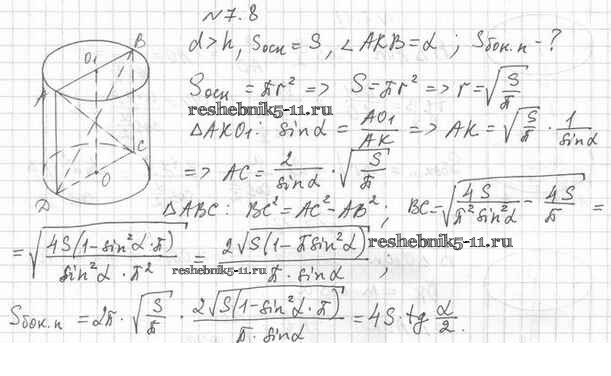 №7.8
d>h, Sосн = S, ∠AKB=α ; Sбок.п - ?
Sосн = πr² => S=πr² => r=√(S/π)
reshebnik5-11.ru
ΔAKO₁: sinα = AO₁/AK => AK = √(S/π) · 1/sinα
=> AC = 2/sinα · √(S/π)
ΔABC: BC² = AC² - AB² ; BC = √(4S/(π² sin²α) - 4S/π) =
= √(4S(1-sin²α·π)/(sin²α · π²)) = 2√(S(1-πsin²α))/(π · sinα) ;
reshebnik5-11.ru
reshebnik5-11.ru
Sбок.п = 2π · √(S/π) · 2√(S(1-sin²α·π))/(π · sinα) = 4S · tg α/2.
A
B
O₁
K
C
O
D